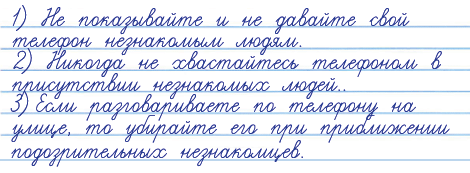 1) Не показывайте и не давайте свой
телефон незнакомым людям.
2) Никогда не хвастайтесь телефоном в
присутствии незнакомых людей..
3) Если разговариваете по телефону на
улице, то убирайте его при приближении
подозрительных незнакомцев.